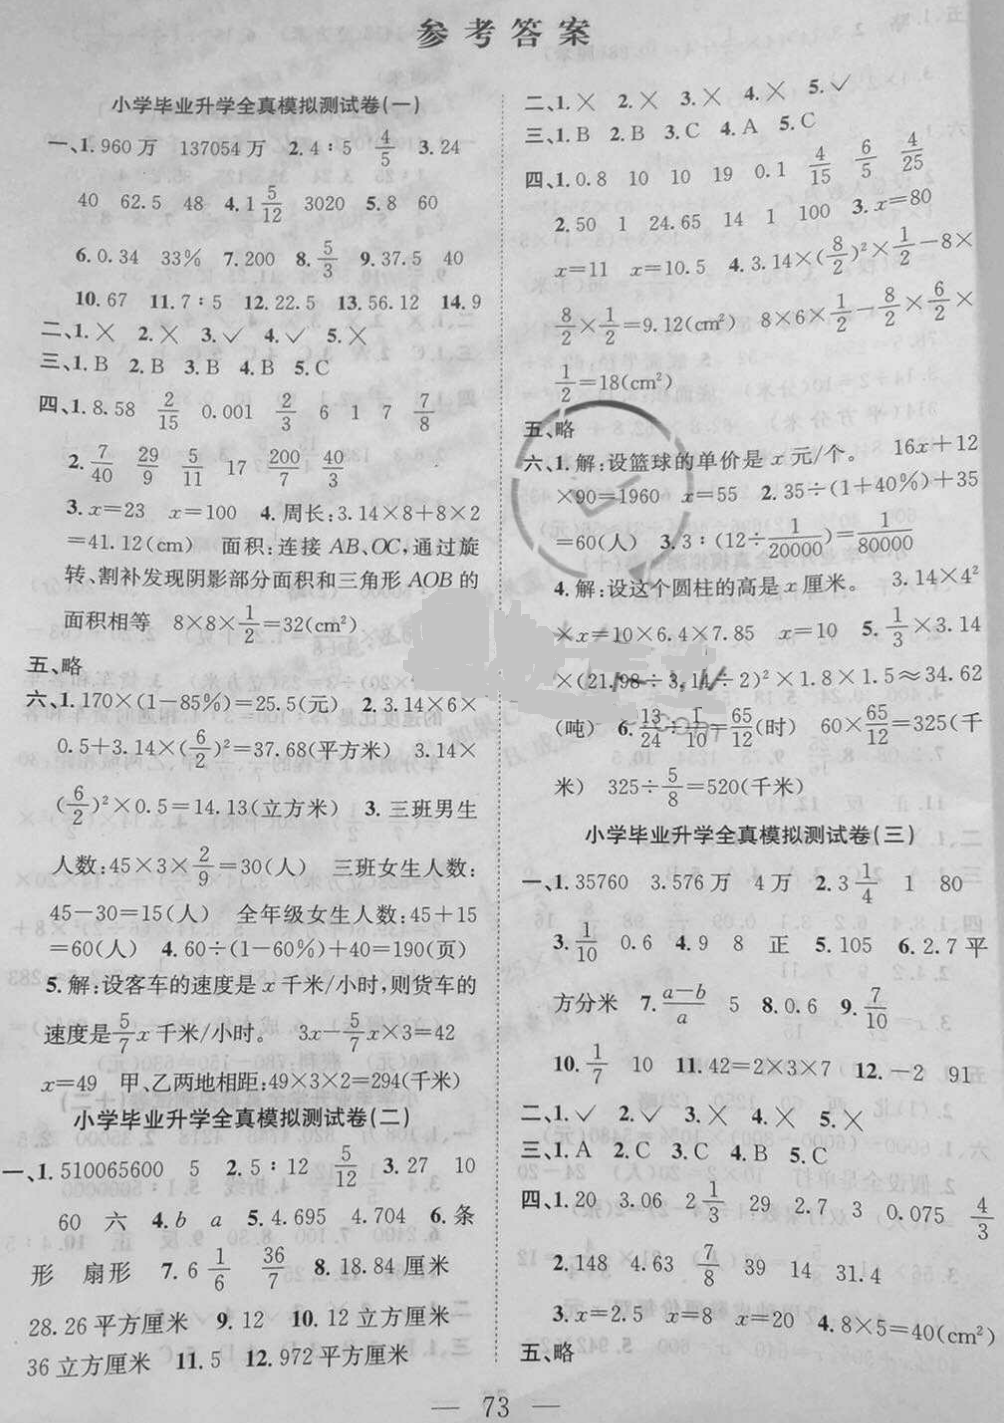 参考答案
小学毕业升学全真模拟测试卷(一)
一、1.960万 137054万 2.4∶5 4/5 3.24
40 62.5 48 4.1 5/12 3020 5.8 60
6.0.34 33% 7.200 8.5/3 9.37.5 40
10.67 11.7∶5 12.22.5 13.56.12 14.9
二、1.× 2.× 3.✓ 4.✓ 5.×
三、1.B 2.B 3.B 4.B 5.C
四、1.8.58 2/15 0.001 2/3 6 1 7 7/8
2.7/40 29/9 5/11 17 200/7 40/3
3.x=23 x=100 4.周长:3.14×8+8×2
=41.12(cm) 面积:连接AB、OC,通过旋
转、割补发现阴影部分面积和三角形AOB的
面积相等 8×8×1/2=32(cm²)
五、略
六、1.170×(1-85%)=25.5(元) 2.3.14×6×
0.5+3.14×(6/2)²=37.68(平方米) 3.14×
(6/2)²×0.5=14.13(立方米) 3.三班男生
人数:45×3×2/9=30(人) 三班女生人数:
45-30=15(人) 全年级女生人数:45+15
=60(人) 4.60÷(1-60%)+40=190(页)
5.解:设客车的速度是x千米/小时,则货车的
速度是5/7x千米/小时。 3x-5/7x×3=42
x=49 甲、乙两地相距:49×3×2=294(千米)
小学毕业升学全真模拟测试卷(二)
一、1.510065600 5 2.5∶12 5/12 3.27 10
60 六 4.b a 5.4.695 4.704 6.条
形 扇形 7.6 1/6 36/7 8.18.84厘米
28.26平方厘米 9.12 10.12立方厘米
36立方厘米 11.5 12.972平方厘米
二、1.× 2.× 3.× 4.× 5.✓
三、1.B 2.B 3.C 4.A 5.C
四、1.0.8 10 10 19 0.1 4/15 6/5 4/25
2.50 1 24.65 14 1 100 3.x=80
x=11 x=10.5 4.3.14×(8/2)²×1/2-8×
8/2×1/2=9.12(cm²) 8×6×1/2-8/2×6/2×
1/2=18(cm²)
五、略
六、1.解:设篮球的单价是x元/个。 16x+12
×90=1960 x=55 2.35÷(1+40%)+35
=60(人) 3.3∶(12÷1/20000)=1/80000
4.解:设这个圆柱的高是x厘米。 3.14×4²
×x=10×6.4×7.85 x=10 5.1/3×3.14
×(21.98÷3.14÷2)²×1.8×1.5≈34.62
(吨) 6.13/24÷1/10=65/12(时) 60×65/12=325(千
米) 325÷5/8=520(千米)
小学毕业升学全真模拟测试卷(三)
一、1.35760 3.576万 4万 2.3 1/4 1 80
3.1/10 0.6 4.9 8 正 5.105 6.2.7平
方分米 7.a-b/a 5 8.0.6 9.7/10
10.1/7 10 11.42=2×3×7 12.-2 91
二、1.✓ 2.✓ 3.× 4.× 5.×
三、1.A 2.C 3.C 4.B 5.C
四、1.20 3.06 2 1/3 29 2.7 3 0.075 4/3
2.148 4.63 7/8 39 14 31.4
3.x=2.5 x=8 x=20 4.8×5=40(cm²)
五、略
— 73 —